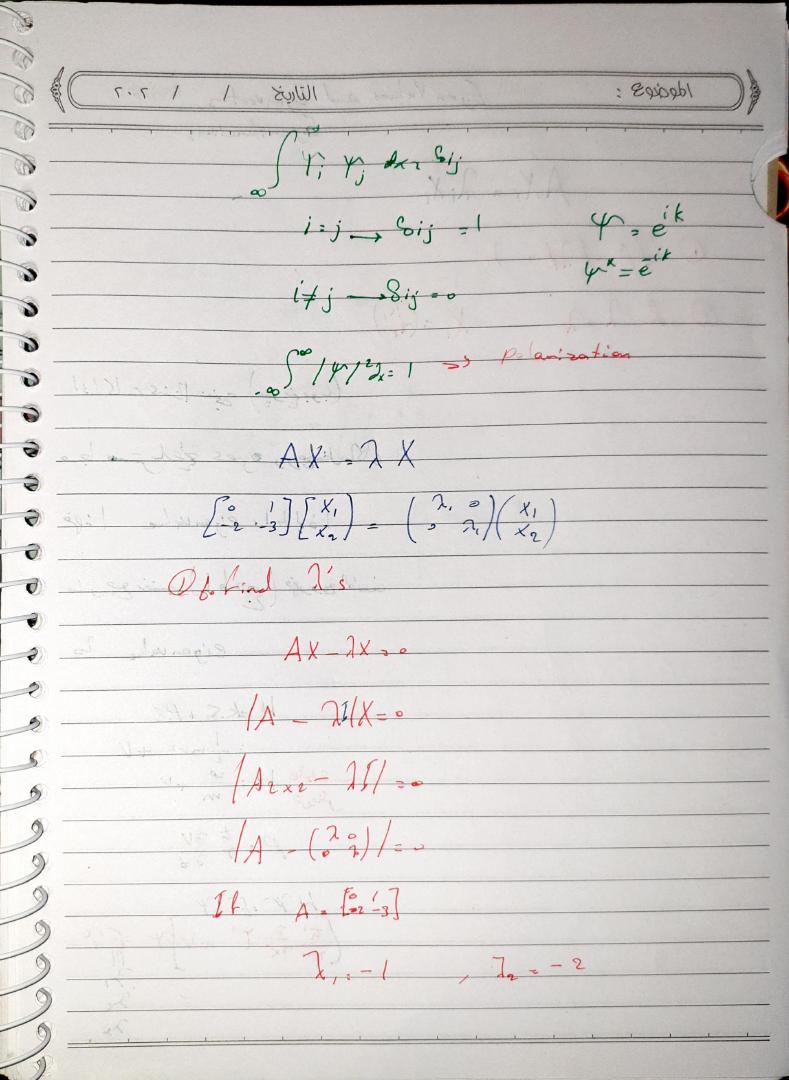 الموضوع : التاريخ / / ٢٠٢
∫_{-∞}^{∞} ψ_i ψ_j dx = δij
i = j → δij = 1 ψ = e^{ik}
ψ* = e^{-ik}
i ≠ j → δij = 0
∫_{-∞}^{∞} |ψ|² dx = 1 → Polarization
AX = λ X
[0 1; -2 -3] [X₁; X₂] = (λ₁ 0; 0 λ₁) (X₁; X₂)
① to find λ's
AX - λX = 0
|A - λI|X = 0
|A₂ₓ₂ - λI| = 0
|A - (λ 0; 0 λ)| = 0
If A = [0 1; -2 -3]
λ₁ = -1 , λ₂ = -2